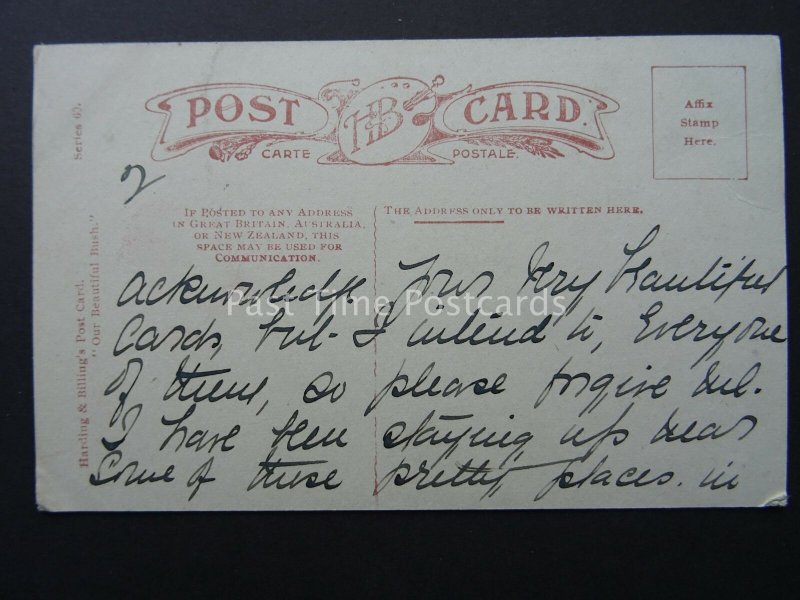 POST CARD.
HB
CARTE POSTALE.
Affix
Stamp
Here.
Series 69.
Harding & Billing's Post Card.
"Our Beautiful Bush."
2
IF POSTED TO ANY ADDRESS
IN GREAT BRITAIN, AUSTRALIA,
OR NEW ZEALAND, THIS
SPACE MAY BE USED FOR
COMMUNICATION.
THE ADDRESS ONLY TO BE WRITTEN HERE.
acknowledge your very beautiful
Cards, but I intend to, Everyone
of them, so please forgive me.
I have been staying up near
Some of these pretty places. in
Past Time Postcards